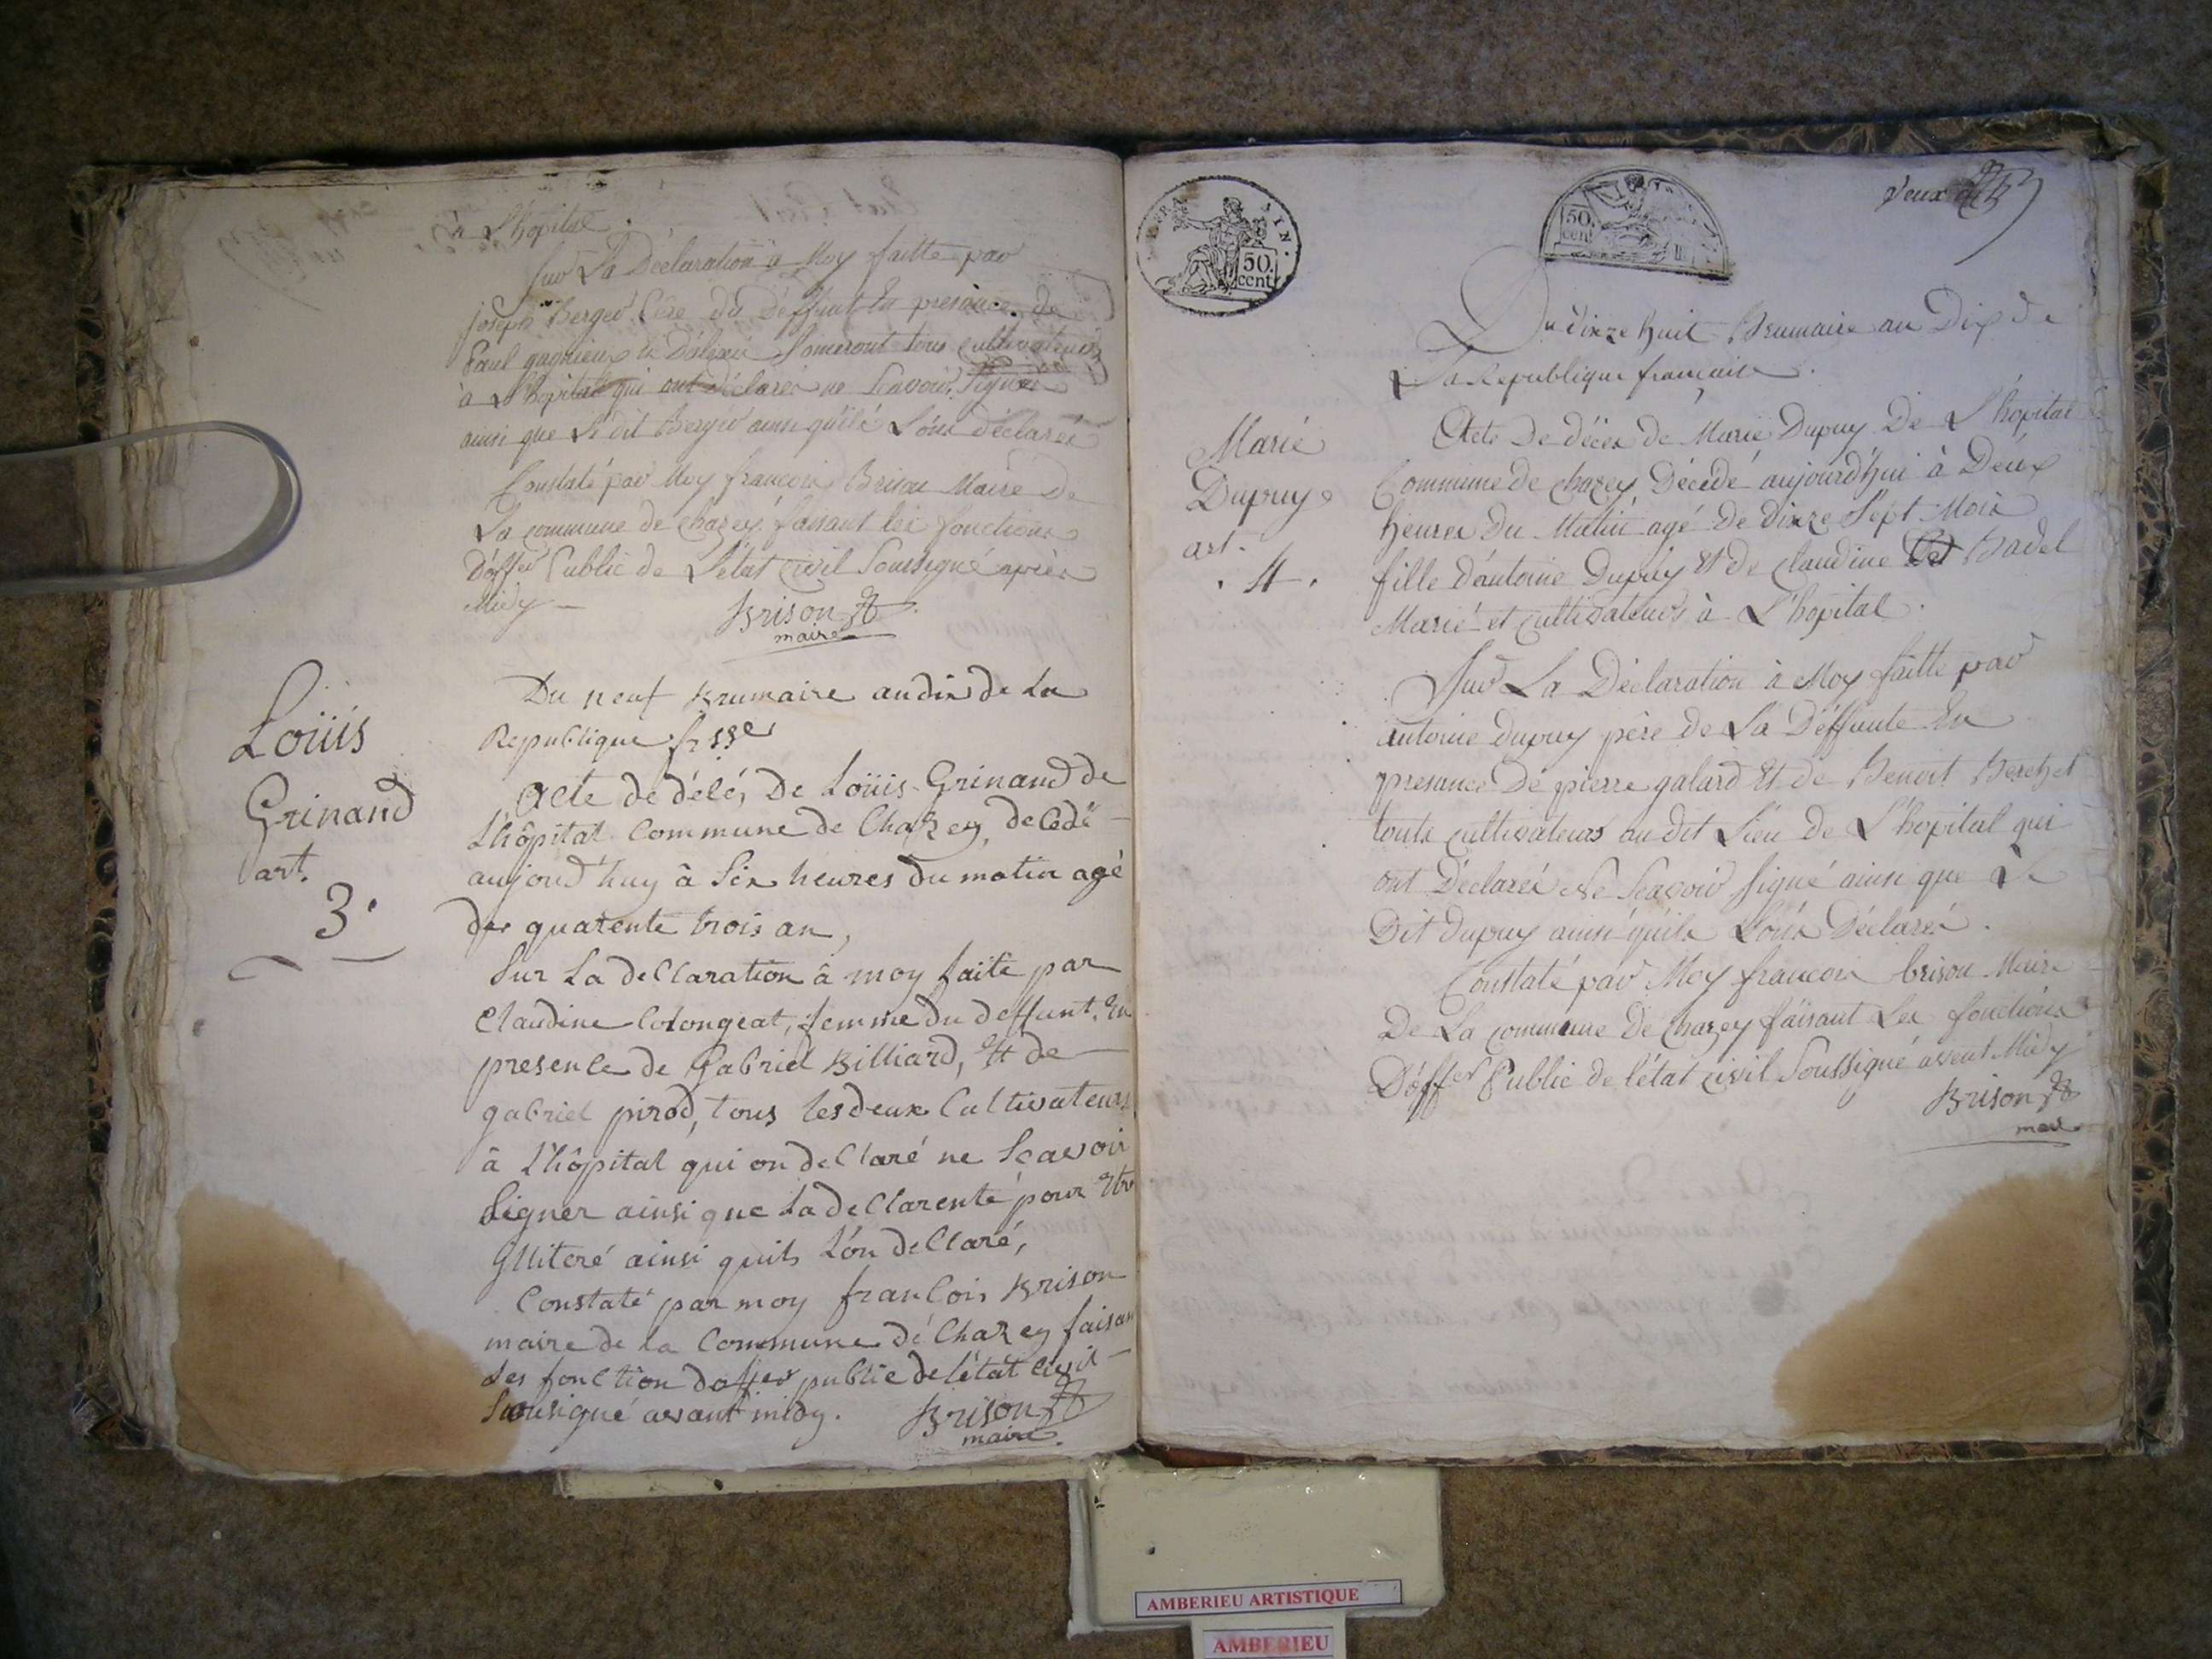 à L'hopital.
Sur La Déclaration à Moy faitte par
joseph Berger Père du Déffunt En présance de
Paul gagnieux & Someront tous cultivateurs
à L'hopital qui ont déclarés ne Scavoir Signer
ainsi que Le dit Berger ainsi quils Lons déclarés
Constaté par Moy francois Brison Maire de
La commune de chazey faisant les fonctions
D'offer Public de L'état civil Soussigné après
Midy
Brison
maire
Loüis
Grinand
art.
3.
Du neuf Brumaire an dix de La
Republique frsse
Acte de décés De Loüis Grinand de
L'hôpital Commune de Chazey, decedé
aujourd'huy à Six heures du matin agé
de quarente trois an,
Sur La declaration à moy faite par
Claudine Colongeat, femme du deffunt, En
presence de Gabriel Billiard, Et de
gabriel pirod, tous les deux Cultivateurs
à L'hôpital qui on declaré ne Scavoir
Signer ainsi que La declarente pour Etre
Illiteré ainsi quils L'ón declaré,
Constaté par moy francois Brison
maire de la Commune de Chazey faisan
Les fonction d'offier public de l'état Civil
Sousigné avant midy.
Brison
maire
FRA IN.
50
cent
50.
cent
Deux
Du dixze huit Brumaire an Dix de
La Republique francaise.
Marie
Dupuy
art.
. 4 .
Acte De décés de Marie Dupuy De L'hopital
Commune de chazey Décédé aujourd'hui à Deux
heures Du Matin agé de dixze Sept Mois
fille d'antoine Dupuy Et de claudine Badel
Marié et cultivateurs à L'hopital.
Sur La Déclaration à Moy faitte par
antoine dupuy père de La Déffunte En
presance De pierre galard Et de Benoit Berchet
touts cultivateurs au dit Lieu de L'hopital qui
ont Déclarés Ne Scavoir Signé ainsi que Le
Dit dupuy ainsi quils Lons Déclarés.
Constaté par Moy francois brison Maire
De La commune De chazey faisant Les fonctions
D'offer Public de l'état civil Soussigné avent Midy
Brison
maire
AMBERIEU ARTISTIQUE
AMBERIEU